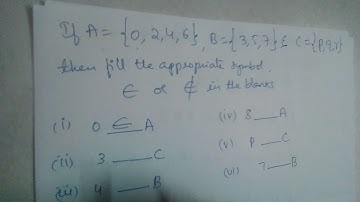 If A = {0, 2, 4, 6}, B = {3, 5, 7} & C = {p, q, r}
then fill the appropriate symbol
∈ or ∉ in the blanks
(i) 0 ∈ A
(ii) 3 ____ C
(iii) 4 ____ B
(iv) 8 ____ A
(v) p ____ C
(vi) 7 ____ B